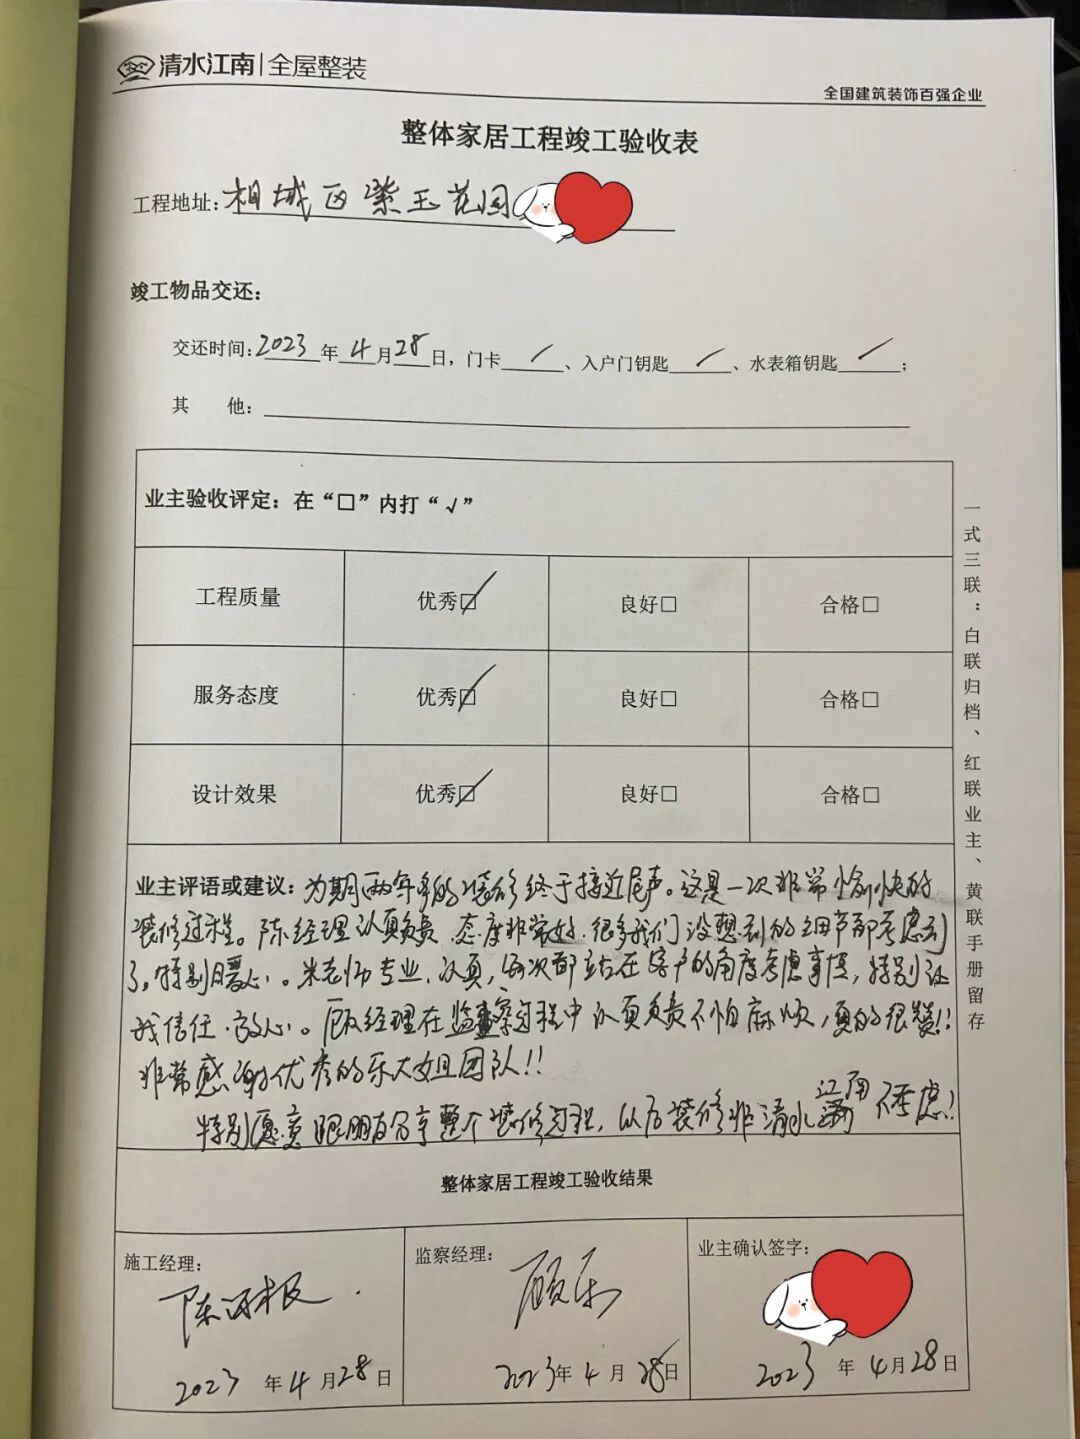 清水江南|全屋整装
全国建筑装饰百强企业
整体家居工程竣工验收表
工程地址：相城区紫玉花园
竣工物品交还：
交还时间：2023年4月28日，门卡/、入户门钥匙/、水表箱钥匙/；
其 他：
业主验收评定：在“□”内打“√”
工程质量 优秀□ 良好□ 合格□
服务态度 优秀□ 良好□ 合格□
设计效果 优秀□ 良好□ 合格□
业主评语或建议：为期两年多的装修终于接近尾声。这是一次非常愉快的
装修过程。陈经理认真负责，态度非常好，很多我们没想到的细节都考虑到
了，特别暖心。朱老师专业、认真，每次都站在客户的角度考虑事情，特别让
我信任、放心。顾经理在监察过程中认真负责不怕麻烦，真的很赞！！
非常感谢优秀的乐大姐团队！！
特别愿意跟朋友分享整个装修过程，以后装修非清水江南不考虑！
一式三联：白联归档、红联业主、黄联手册留存
整体家居工程竣工验收结果
施工经理：
监察经理：
业主确认签字：
顾乐
2023年4月28日
2023年4月28日
2023年4月28日